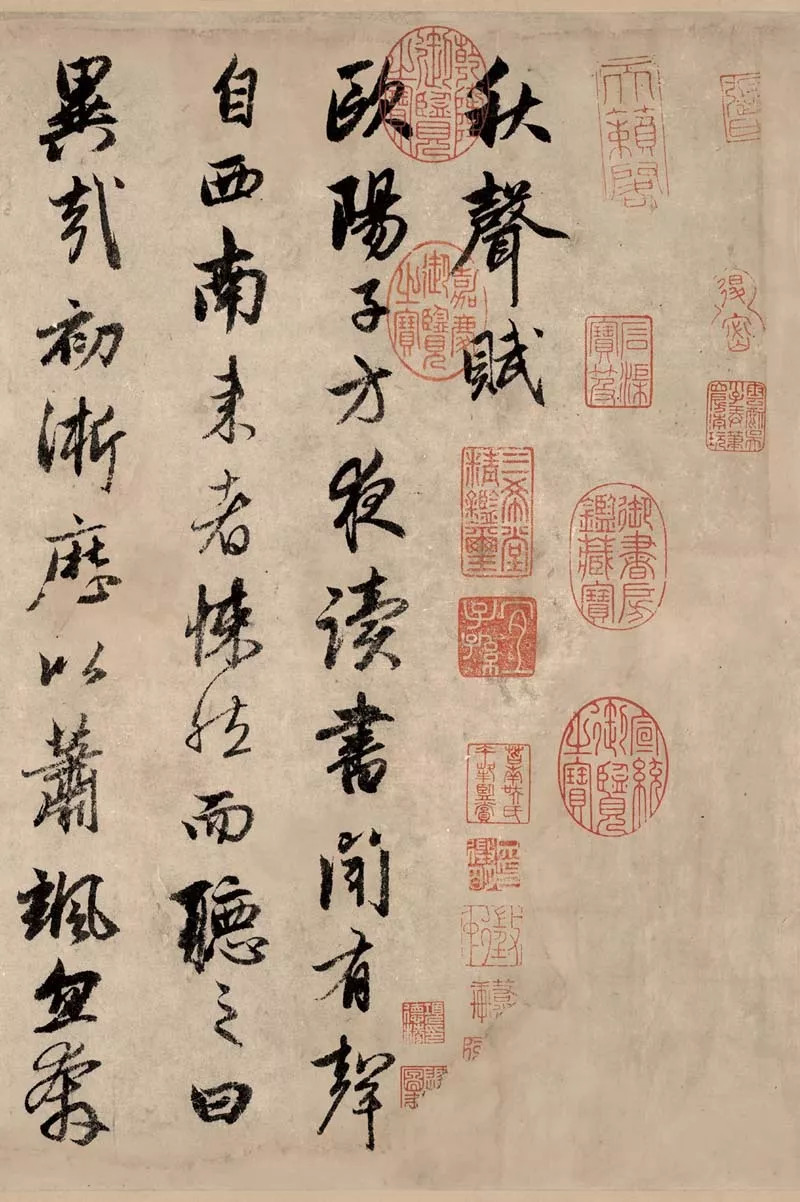 天籟閣
石渠寶笈
御書房鑑藏寶
宣統御覽之寶
秋聲賦
三希堂精鑑璽
宜子孫
乾隆御覽之寶
嘉慶御覽之寶
歐陽子方夜讀書聞有聲
自西南来者悚然而聽之曰
異哉初淅歷以蕭颯忽奔